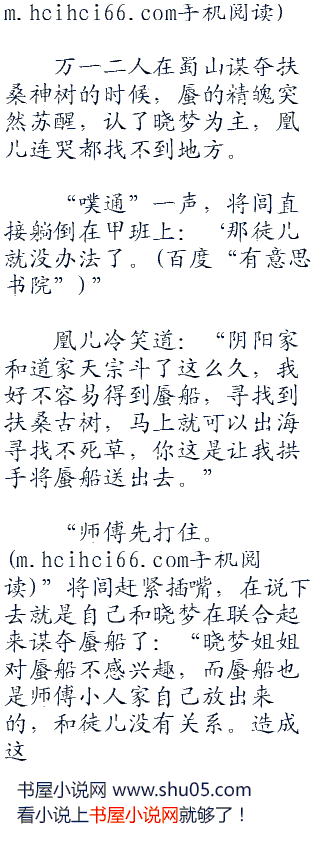 m.hcihci66.com手机阅读)
万一二人在蜀山谋夺扶
桑神树的时候，蜃的精魄突
然苏醒，认了晓梦为主，凰
儿连哭都找不到地方。
“噗通”一声，将闾直
接躺倒在甲班上：‘那徒儿
就没办法了。(百度“有意思
书院”)”
凰儿冷笑道：“阴阳家
和道家天宗斗了这么久，我
好不容易得到蜃船，寻找到
扶桑古树，马上就可以出海
寻找不死草，你这是让我拱
手将蜃船送出去。”
“师傅先打住。
(m.hcihci66.com手机阅
读)”将闾赶紧插嘴，在说下
去就是自己和晓梦在联合起
来谋夺蜃船了：“晓梦姐姐
对蜃船不感兴趣，而蜃船也
是师傅小人家自己放出来
的，和徒儿没有关系。造成
这
书屋小说网 www.shu05.com
看小说上书屋小说网就够了！